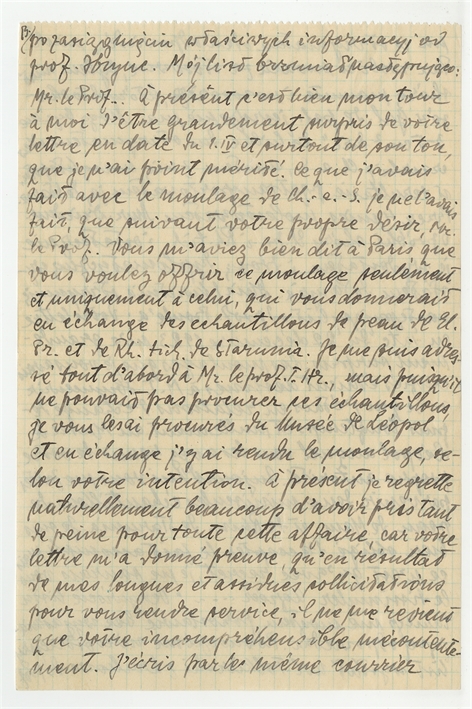 13/
po zasiągnięciu właściwych informacyj od
prof. Hryne. Mój list brzmiał następująco:
Mr. le Prof.. À présent c'est bien mon tour
à moi d'être grandement surpris de votre
lettre en date du 1.IV et surtout de son ton,
que je n'ai point mérité. Ce que j'avais
fait avec le moulage de Ch.-e.-S. je ne l'avais
fait, que suivant votre propre désir, Mr.
le Prof. Vous m'aviez bien dit à Paris que
vous voulez offrir ce moulage seulement
et uniquement à celui, qui vous donnerait
en échange des echantillons de peau de El.
Pr. et de Rh. tich. de Starunia. Je me suis adres-
sé tout d'abord à Mr. le prof. T. Hr., mais puisqu'il
ne pouvait pas procurer ces échantillons,
je vous les ai procurés du Musée de Léopol
et en échange j'y ai rendu le moulage, se-
lon votre intention. À présent je regrette
naturellement beaucoup d'avoir pris tant
de peine pour toute cette affaire, car votre
lettre m'a donné preuve, qu'en résultat
de mes longues et assidues sollicitations
pour vous rendre service, il ne me revient
que votre incompréhensible mécontente-
ment. J'écris par le même courrier